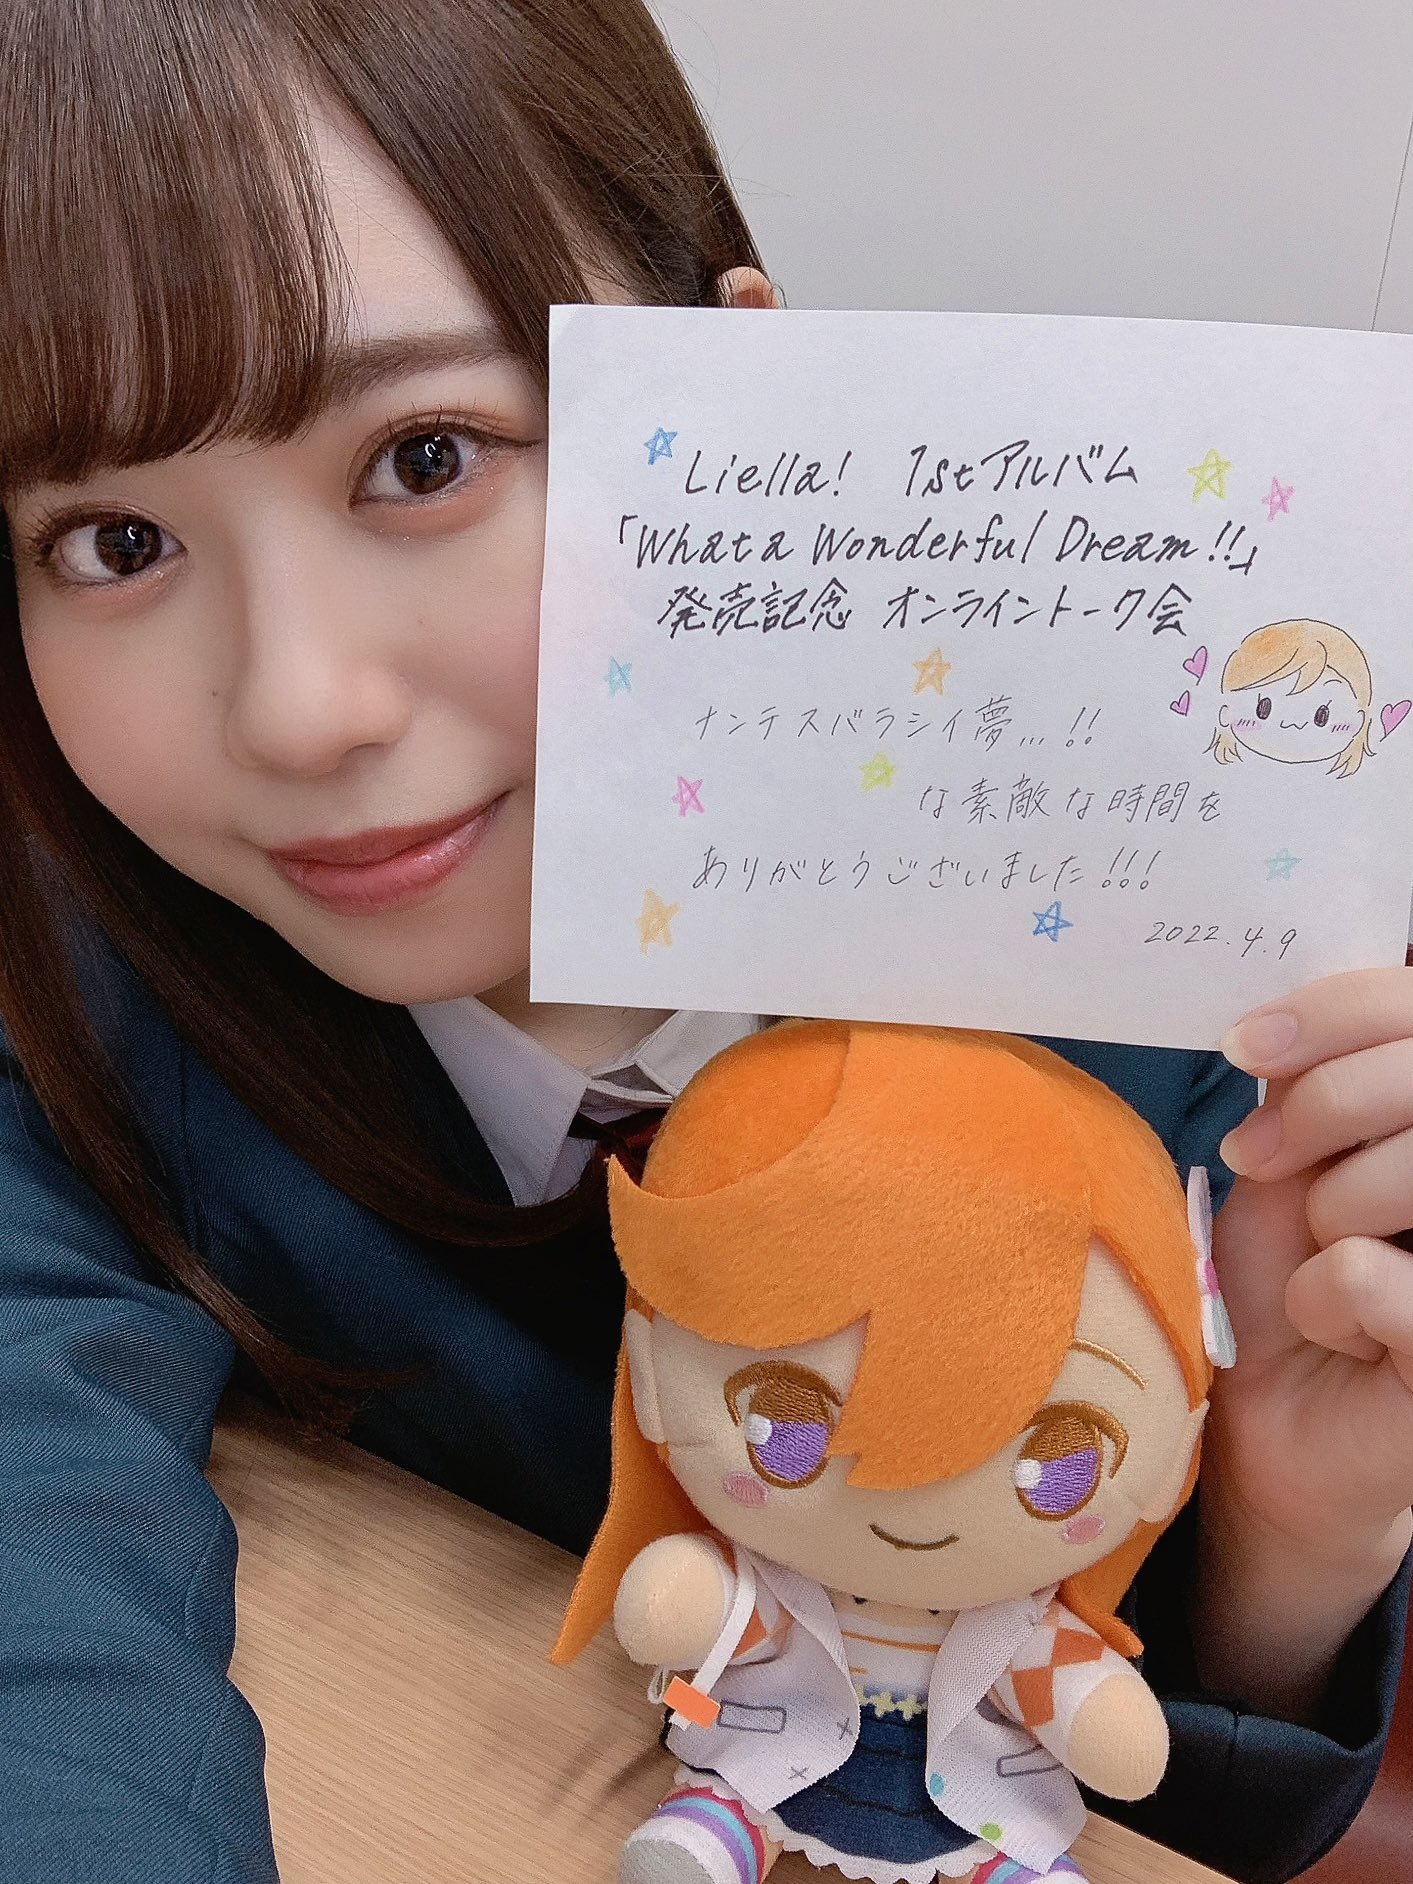 Liella! 1stアルバム
「What a Wonderful Dream!!」
発売記念 オンライントーク会
ナンテスバラシイ夢...!!
な素敵な時間を
ありがとうございました!!!
2022.4.9